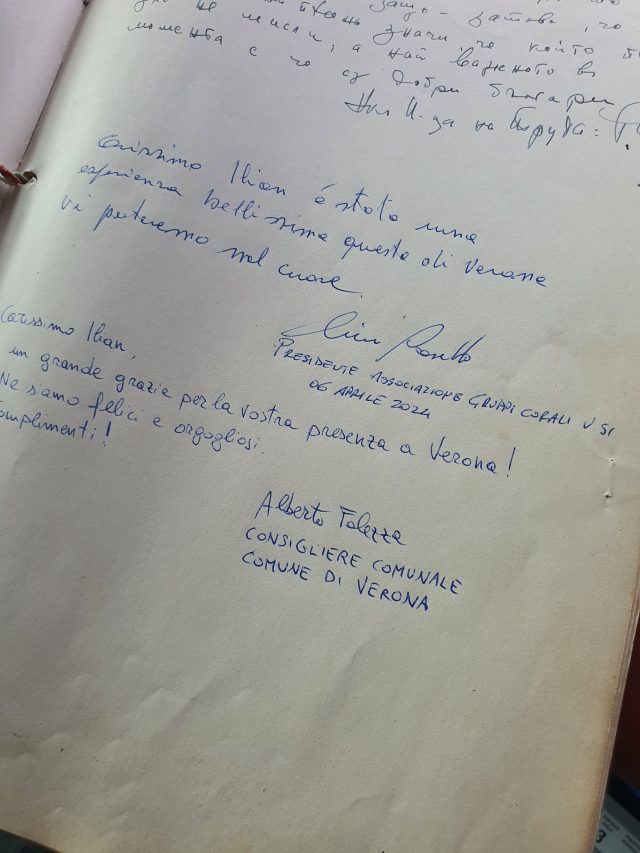 защо - затова, че
не мисли, а най важното в
момента е че сз добри българи
carissimo Ilian é stata una
esperienza bellissima questa di Verona
vi porteremo nel cuore.
PRESIDENTE ASSOCIAZIONE GRUPPI CORALI V SI
06 APRILE 2024
Carissimo Ilian,
un grande grazie per la vostra presenza a Verona!
Ne siamo felici e orgogliosi.
omplimenti!
Alberto Falezza
CONSIGLIERE COMUNALE
COMUNE DI VERONA